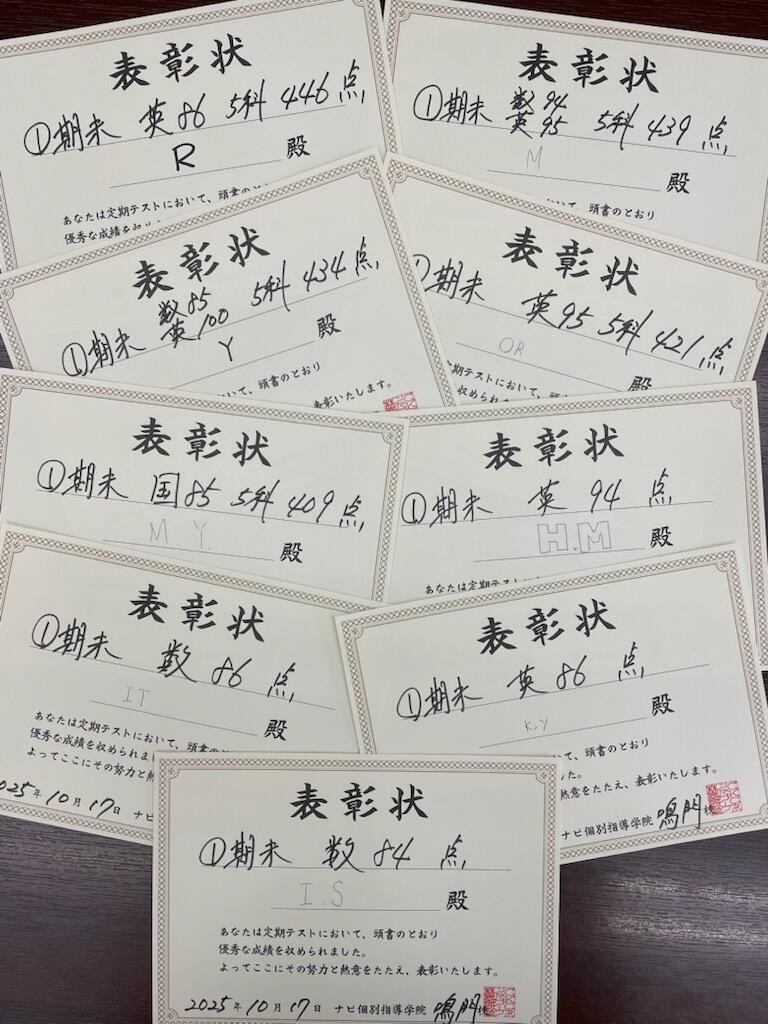 表彰状
①期末 英86 5科 446点
R 殿
あなたは定期テストにおいて、頭書のとおり
優秀な成績を収め
表彰状
①期末 数94 英95 5科 439点
M 殿
いて、頭書のとおり
表彰状
①期末 数85 英100 5科 434点
Y 殿
いて、頭書のとおり
表彰いたします。
表彰状
①期末 英95 5科 421点
OR 殿
定期テスト
収められました。
表彰状
①期末 国85 5科 409点
M.Y. 殿
表彰状
①期末 英 94点
H.M 殿
あなたは定期テスト
表彰状
①期末 数86点
IT 殿
あなたは定期テストにおいて、頭書のとおり
優秀な成績を収められまし
よってここにその努力と熱
2025年10月17日 ナビ
表彰状
①期末 英86点
K.Y 殿
いて、頭書のとおり
した。
熱意をたたえ、表彰いたします。
ナビ個別指導学院 鳴門校
表彰状
①期末 数84点
I.S 殿
あなたは定期テストにおいて、頭書のとおり
優秀な成績を収められました。
よってここにその努力と熱意をたたえ、表彰いたします。
2025年10月17日 ナビ個別指導学院 鳴門校